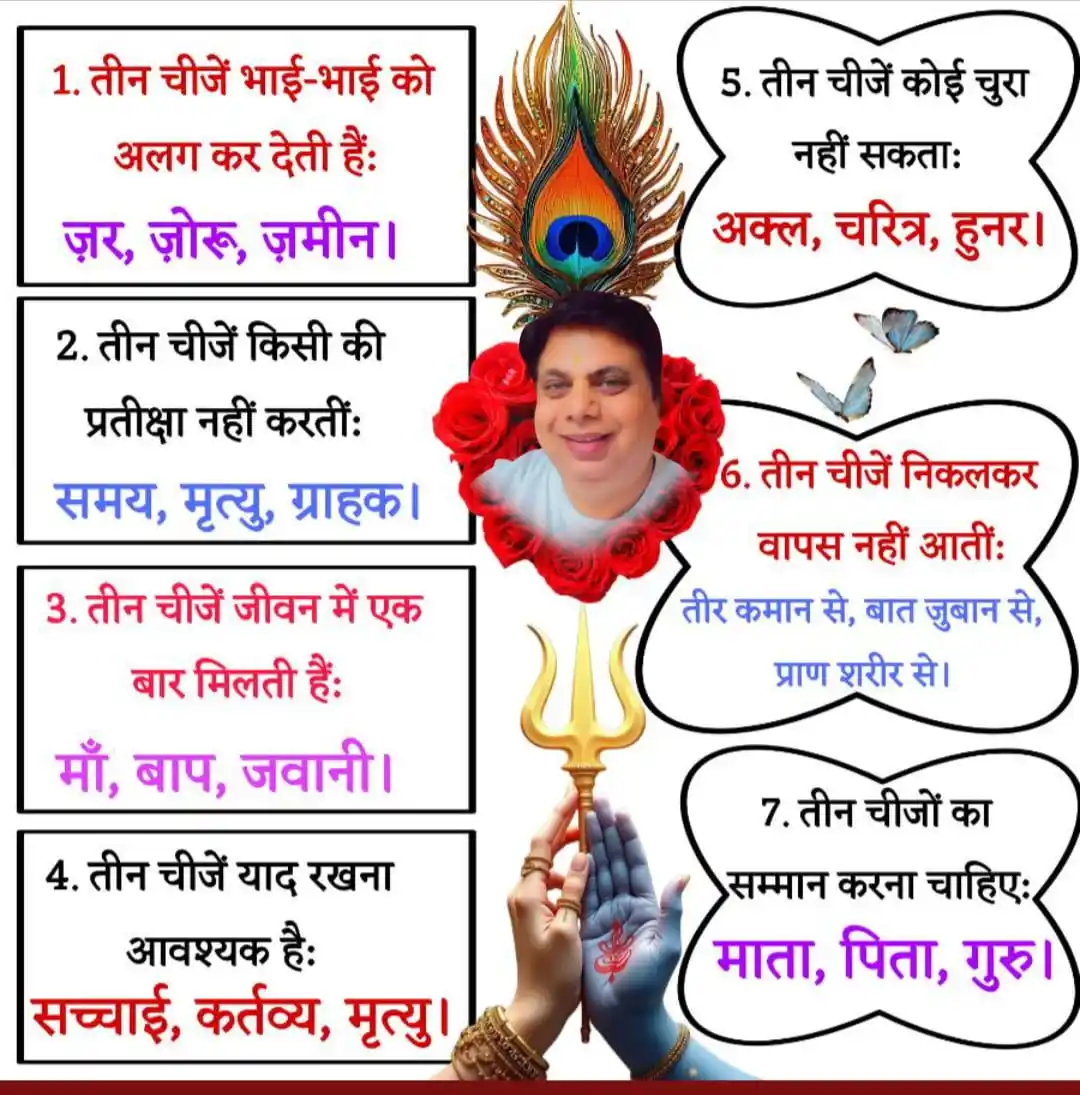 1. तीन चीजें भाई-भाई को
अलग कर देती हैं:
ज़र, ज़ोरू, ज़मीन।
2. तीन चीजें किसी की
प्रतीक्षा नहीं करतीं:
समय, मृत्यु, ग्राहक।
3. तीन चीजें जीवन में एक
बार मिलती हैं:
माँ, बाप, जवानी।
4. तीन चीजें याद रखना
आवश्यक है:
सच्चाई, कर्तव्य, मृत्यु।
5. तीन चीजें कोई चुरा
नहीं सकता:
अक्ल, चरित्र, हुनर।
6. तीन चीजें निकलकर
वापस नहीं आतीं:
तीर कमान से, बात जुबान से,
प्राण शरीर से।
7. तीन चीजों का
सम्मान करना चाहिए:
माता, पिता, गुरु।